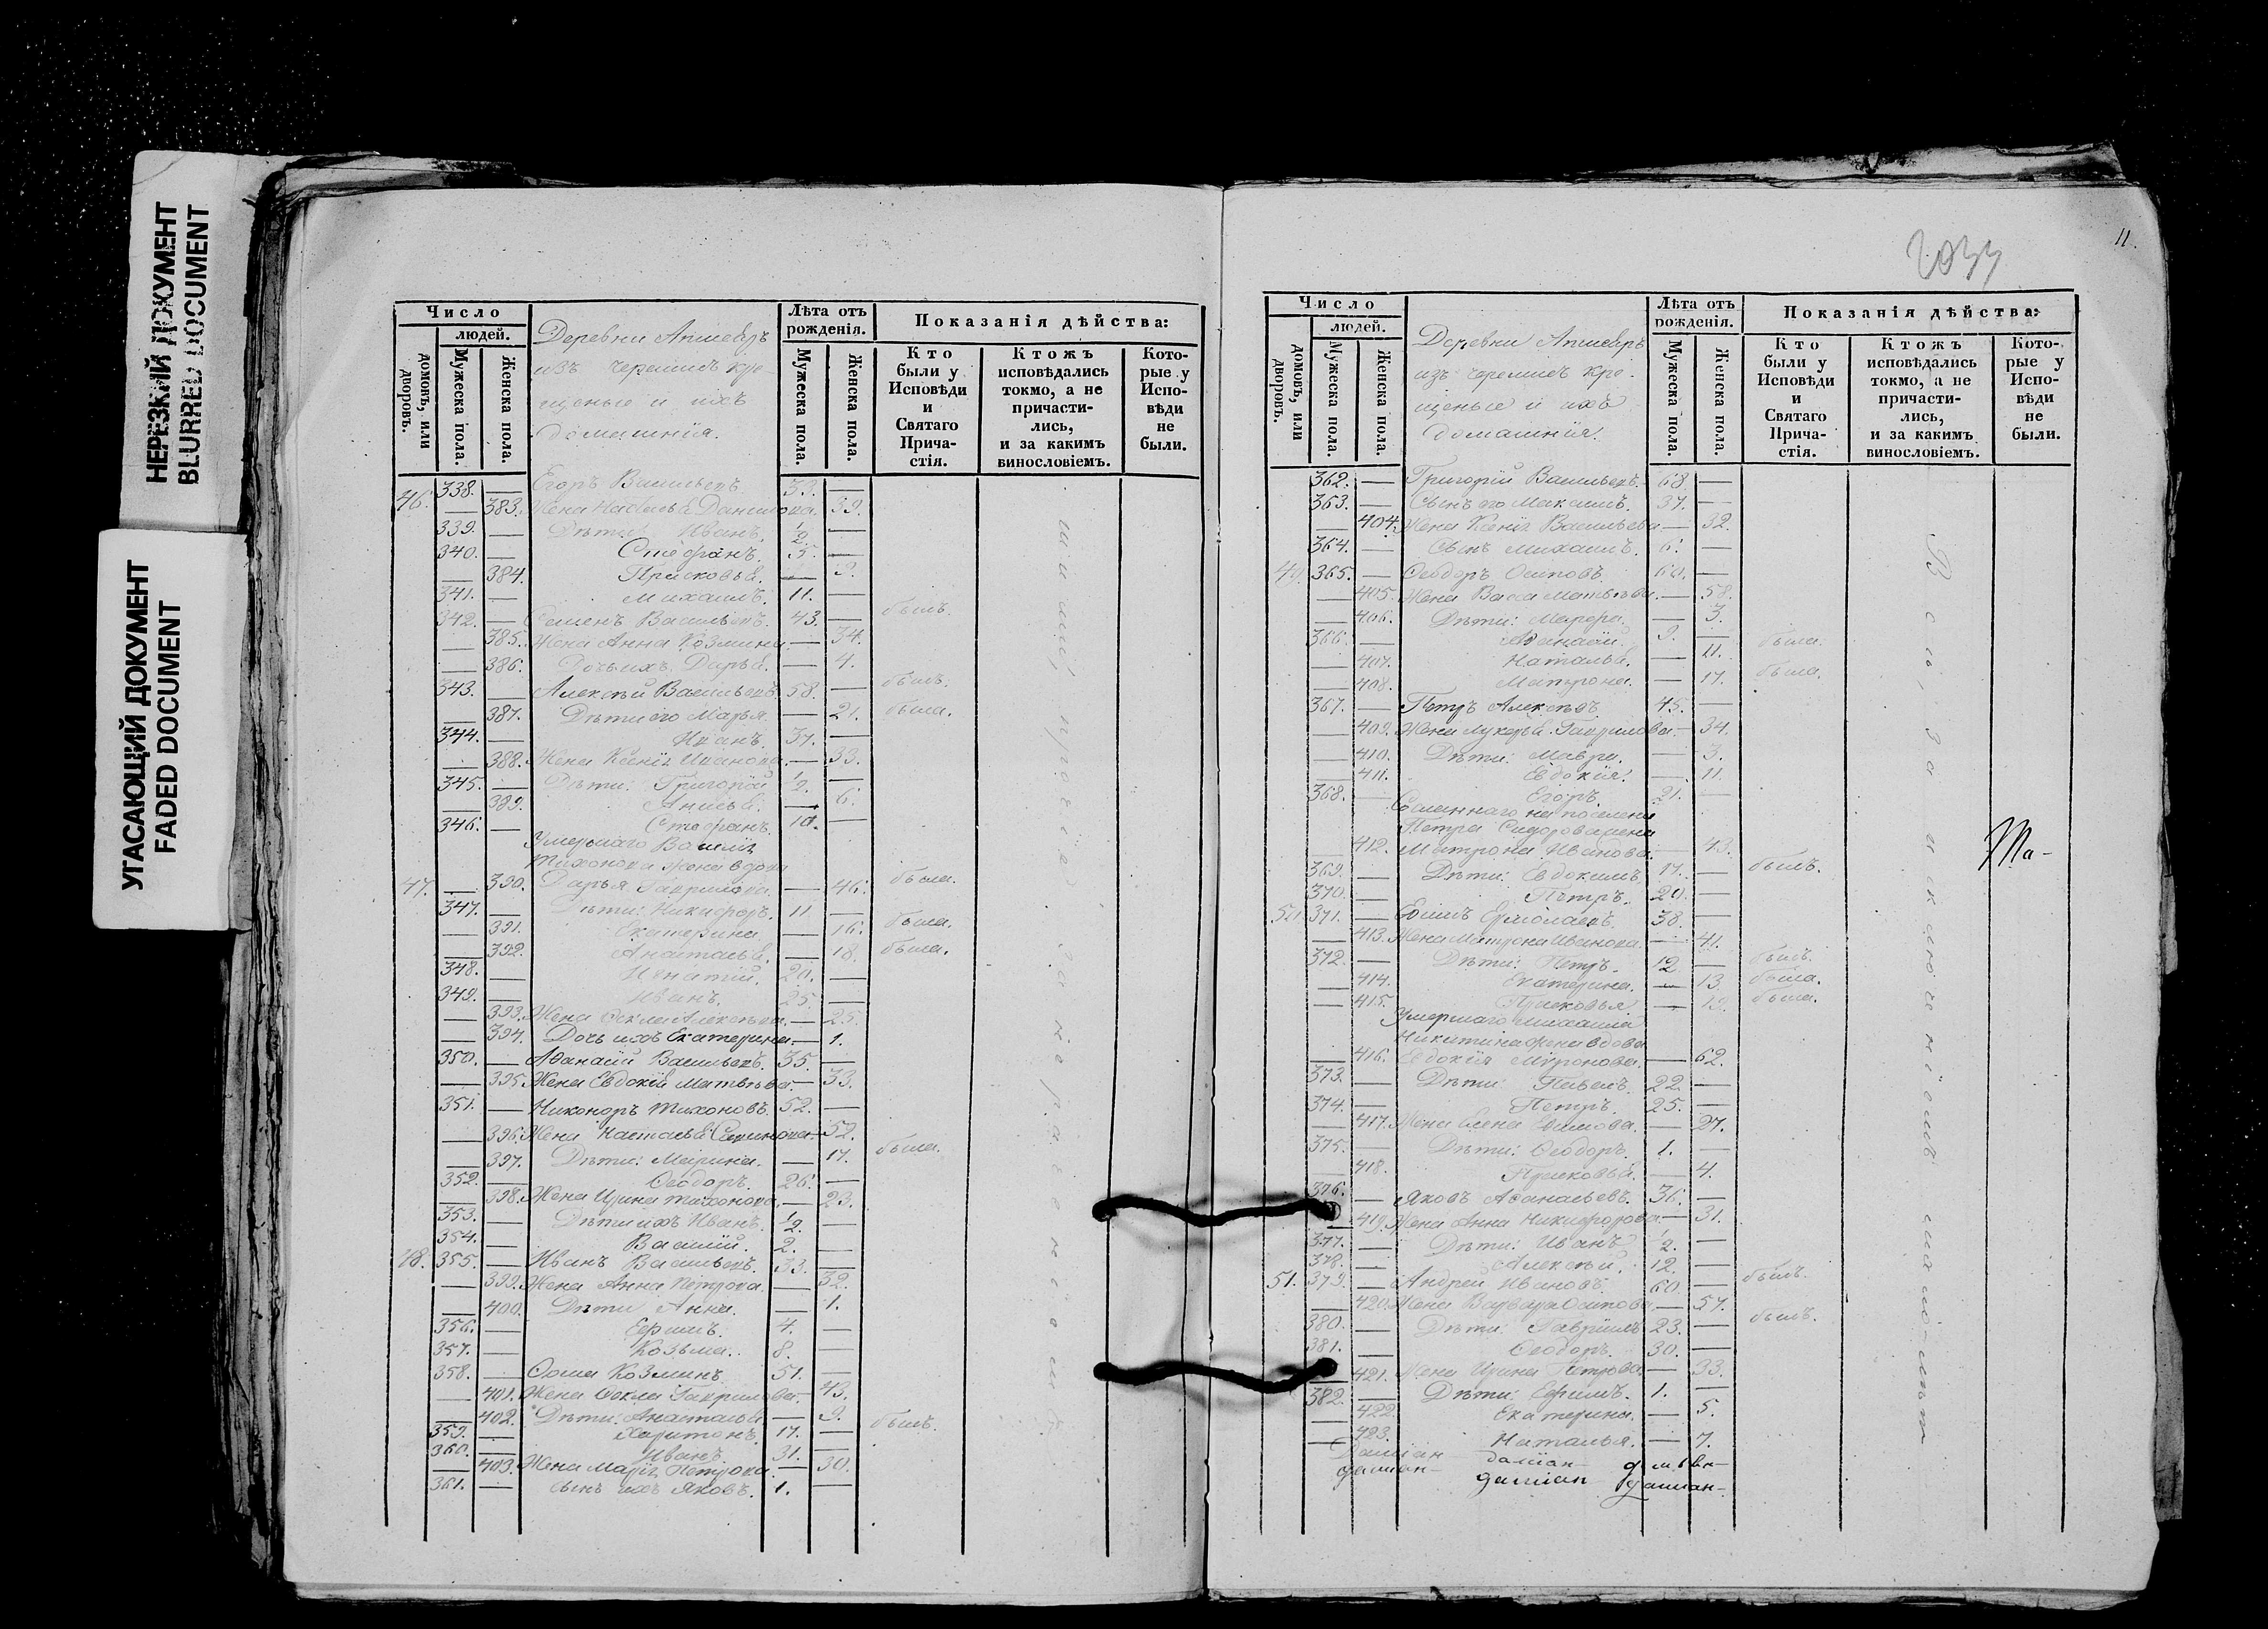 НЕРЕЗКИЙ ДОКУМЕНТ
BLURRED DOCUMENT
УГАСАЮЩИЙ ДОКУМЕНТ
FADED DOCUMENT
Число
людей.
домовъ, или дворовъ.
Мужеска пола.
Женска пола.
Деревни Апшеяръ
изъ черемисъ кре-
щеные и ихъ
домашнія.
Лѣта отъ рожденія.
Мужеска пола.
Женска пола.
Показанія дѣйства:
Кто были у Исповѣди и Святаго Прича-стія.
Ктожъ исповѣдались токмо, а не причасти-лись, и за какимъ винословіемъ.
Кото-рые у Испо-вѣди не были.
338. — Егоръ Васильевъ 39. —
46. — 383. Жена Наталья Данилова. — 39.
339. — Дѣти: Иванъ. 1/2. —
340. — Стефанъ. 5. —
— 384. Прасковья. — 9.
341. — Михаилъ. 11. —
342. — Семенъ Васильевъ. 43. — былъ.
— 385. Жена Анна Козмина — 34.
— 386. Дочь ихъ Дарья. — 4.
343. — Алексѣй Васильевъ. 58. — былъ.
— 387. Дѣти его Марья. — 21. была.
344. — Иванъ. 37. —
— 388. Жена Ксенія Иванова. — 33.
345. — Дѣти: Григорій 1/2. —
— 389. Анисья. — 6.
346. — Стефанъ. 10. —
Умершаго Василія
Тихонова жена вдова
47. — 390. Дарья Гаврилова. — 46. была.
347. — Дѣти: Никифоръ. 11. —
— 391. Екатерина. — 16. была.
— 392. Анастасья. — 18. была.
348. — Игнатій. 20. —
349. — Иванъ. 25. —
— 393. Жена Фекла Алексѣева. — 25.
— 394. Дочь ихъ Екатерина. — 1.
350. — Аѳанасій Васильевъ. 35. —
— 395. Жена Евдокія Матвѣева. — 33.
351. — Никоноръ Тихоновъ. 52. —
— 396. Жена Настасья — 52.
— 397. Дѣти: Марина. — 17. была.
352. — Ѳеодоръ. 26. —
— 398. Жена Ирина Тихонова. — 23.
353. — Дѣти ихъ Иванъ. 1/2. —
354. — Василій. 2. —
48. 355. — Иванъ Васильевъ. 33. —
— 399. Жена Анна Петрова. — 32.
— 400. Дѣти Анна. — 1.
356. — Ефимъ. 4. —
357. — Козьма. 8. —
358. — Ѳома Козминъ. 51. —
— 401. Жена Фекла Гаврилова. — 43.
— 402. Дѣти: Анастасья — 9.
359. — Харитонъ. 17. — былъ.
360. — Иванъ. 31. —
— 403. Жена Марія Петрова. — 30.
361. — сынъ ихъ Яковъ. 1. —
11.
Число
людей.
домовъ, или дворовъ.
Мужеска пола.
Женска пола.
Деревни Апшеяръ
изъ черемисъ кре-
щеные и ихъ
домашнія.
Лѣта отъ рожденія.
Мужеска пола.
Женска пола.
Показанія дѣйства:
Кто были у Исповѣди и Святаго Прича-стія.
Ктожъ исповѣдались токмо, а не причасти-лись, и за какимъ винословіемъ.
Кото-рые у Испо-вѣди не были.
362. — Григорій Васильевъ. 68. —
363. — Сынъ его Максимъ. 37. —
— 404. Жена Ксенія Васильева — 32.
364. — Сынъ Михаилъ. 6. —
49. 365. — Ѳеодоръ Осиповъ. 60. —
— 405. Жена Васса Матвѣева. — 58.
— 406. Дѣти: Марфа. — 3.
366. — Аѳанасій. 9. — была.
— 407. Наталья. — 11.
— 408. Матрона. — 17. была.
367. — Петръ Алексѣевъ 45. —
— 409. Жена Лукерья Гаврилова. — 34.
— 410. Дѣти: Мавра. — 3.
— 411. Евдокія. — 11.
368. — Егоръ. 21. —
Сосланнаго на поселенія
Петра Сидорова жена
— 412. Матрона Иванова. — 43.
369. — Дѣти: Евдокимъ 17. — былъ.
370. — Петръ. 20. —
50. 371. — Ермолаевъ. 38. —
— 413. Жена Матрона Иванова. — 41.
372. — Дѣти: Петръ. 12 — былъ.
— 414. Екатерина. — 13. была.
— 415. Прасковья. — была.
Умершаго Михаила
Никитина жена вдова
— 416. Евдокія Миронова. — 62.
373. — Дѣти: Павелъ. 22. —
374. — Петръ. 25. —
— 417. Жена Елена Ефимова. — 27.
375. — Дѣти: Ѳеодоръ. 1. —
— 418. Прасковья. — 4.
376. — Яковъ Аѳанасьевъ. 36. —
— 419. Жена Анна Никифорова — 31.
377. — Дѣти: Иванъ 1/2. —
378. — Алексѣй. 12. —
51. 379. — Андрей Ивановъ. 60. — былъ.
— 420. Жена Варвара Осипова. — 57.
380. — Дѣти: Гавріилъ 23. — былъ.
381. — Ѳеодоръ. 30. —
— 421. Жена Ирина Петрова. — 33.
382. — Дѣти: Ефимъ. 1. —
— 422. Екатерина. — 5.
— 423. Наталья. — 7.
Всѣ, за исключеніемъ
Та-